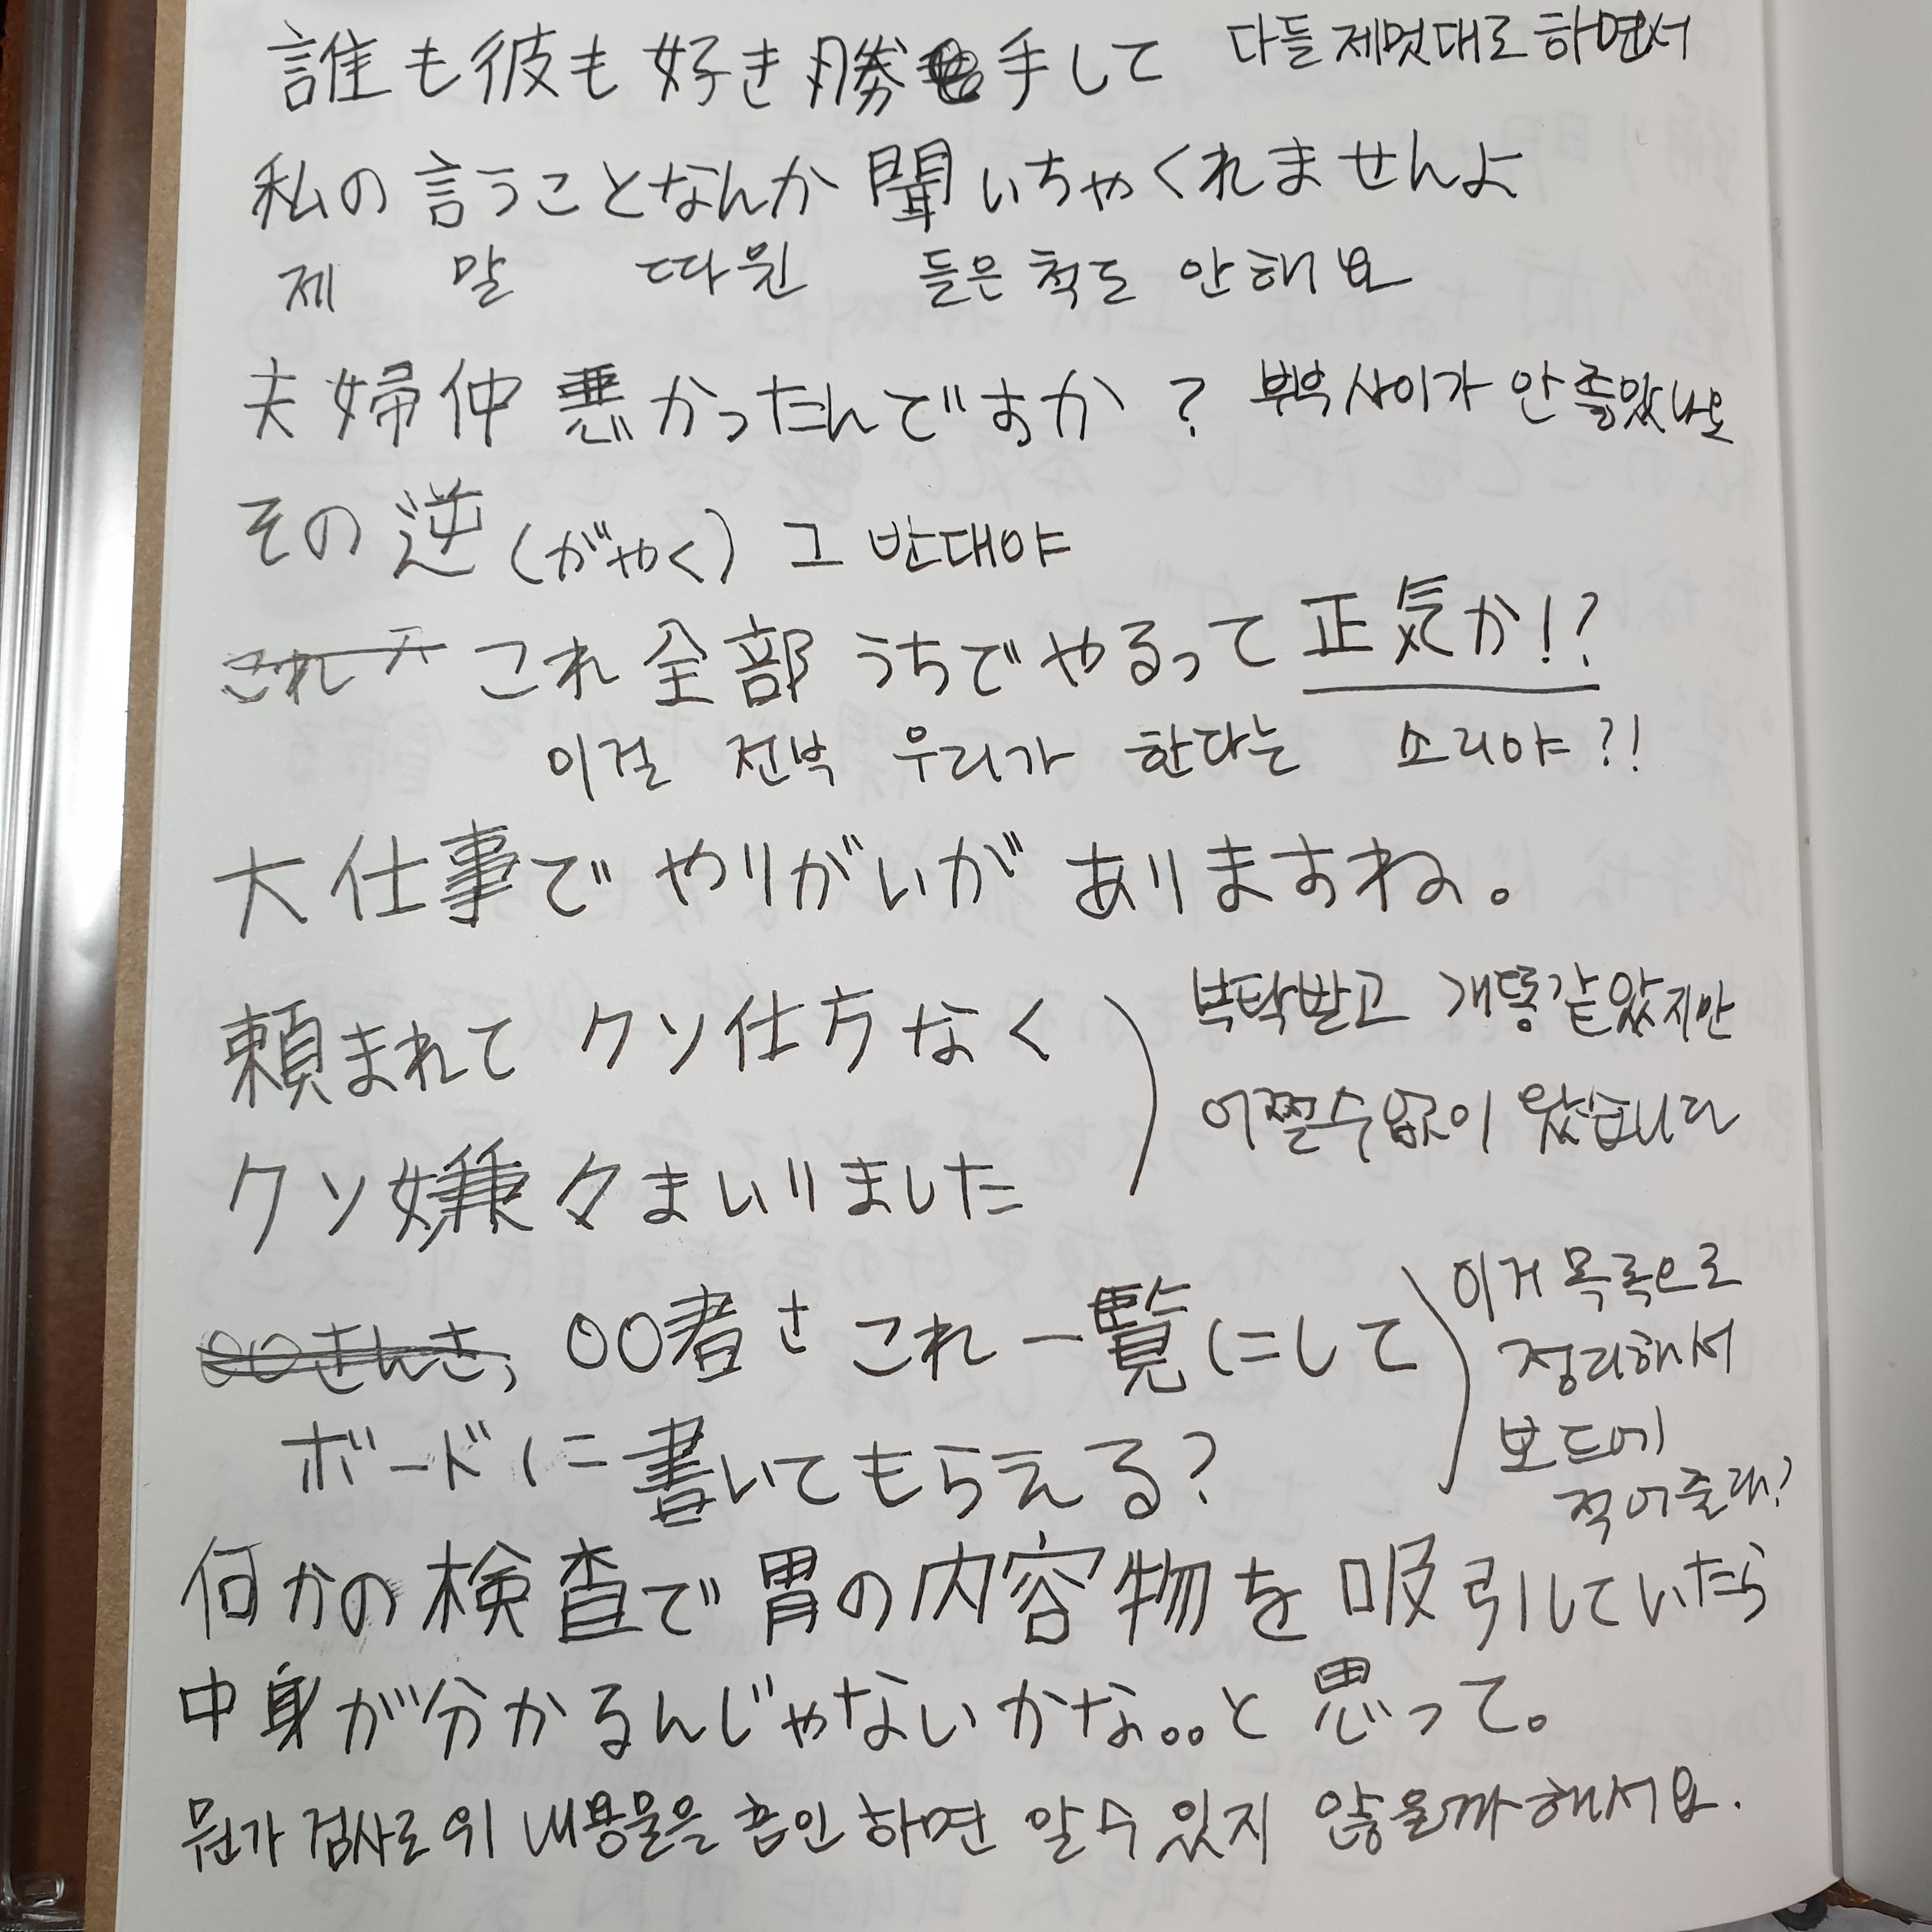 誰も彼も好き勝手して 다들 제멋대로 하면서
私の言うことなんか聞いちゃくれませんよ
제 말 따윈 들은 척도 안해요
夫婦仲悪かったんですか? 부부사이가 안좋았나요
その逆(がやく) 그 반대야
これ全部うちでやるって正気か!?
이걸 전부 우리가 한다는 소리야?!
大仕事でやりがいがありますね。
頼まれてクソ仕方なく
부탁받고 개똥같았지만
어쩔수없이 왔습니다
クソ嫌々まいりました
○○君さこれ一覧にして
이거 목록으로
정리해서
ボードに書いてもらえる?
보드에
적어줄래?
何かの検査で胃の内容物を吸引していたら
中身が分かるんじゃないかな。。と思って。
뭔가 검사로 위 내용물을 흡인하면 알 수 있지 않을까 해서요.